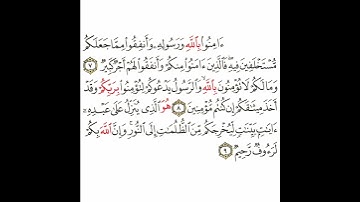 ءَامِنُوا۟ بِٱللَّهِ وَرَسُولِهِۦ وَأَنفِقُوا۟ مِمَّا جَعَلَكُم
مُّسْتَخْلَفِينَ فِيهِ ۖ فَٱلَّذِينَ ءَامَنُوا۟ مِنكُمْ وَأَنفَقُوا۟ لَهُمْ أَجْرٌ كَبِيرٌ ٧
وَمَا لَكُمْ لَا تُؤْمِنُونَ بِٱللَّهِ ۙ وَٱلرَّسُولُ يَدْعُوكُمْ لِتُؤْمِنُوا۟ بِرَبِّكُمْ وَقَدْ
أَخَذَ مِيثَٰقَكُمْ إِن كُنتُم مُّؤْمِنِينَ ٨ هُوَ ٱلَّذِى يُنَزِّلُ عَلَىٰ عَبْدِهِۦٓ
ءَايَٰتٍۭ بَيِّنَٰتٍ لِّيُخْرِجَكُم مِّنَ ٱلظُّلُمَٰتِ إِلَى ٱلنُّورِ ۚ وَإِنَّ ٱللَّهَ بِكُمْ
لَرَءُوفٌ رَّحِيمٌ ٩